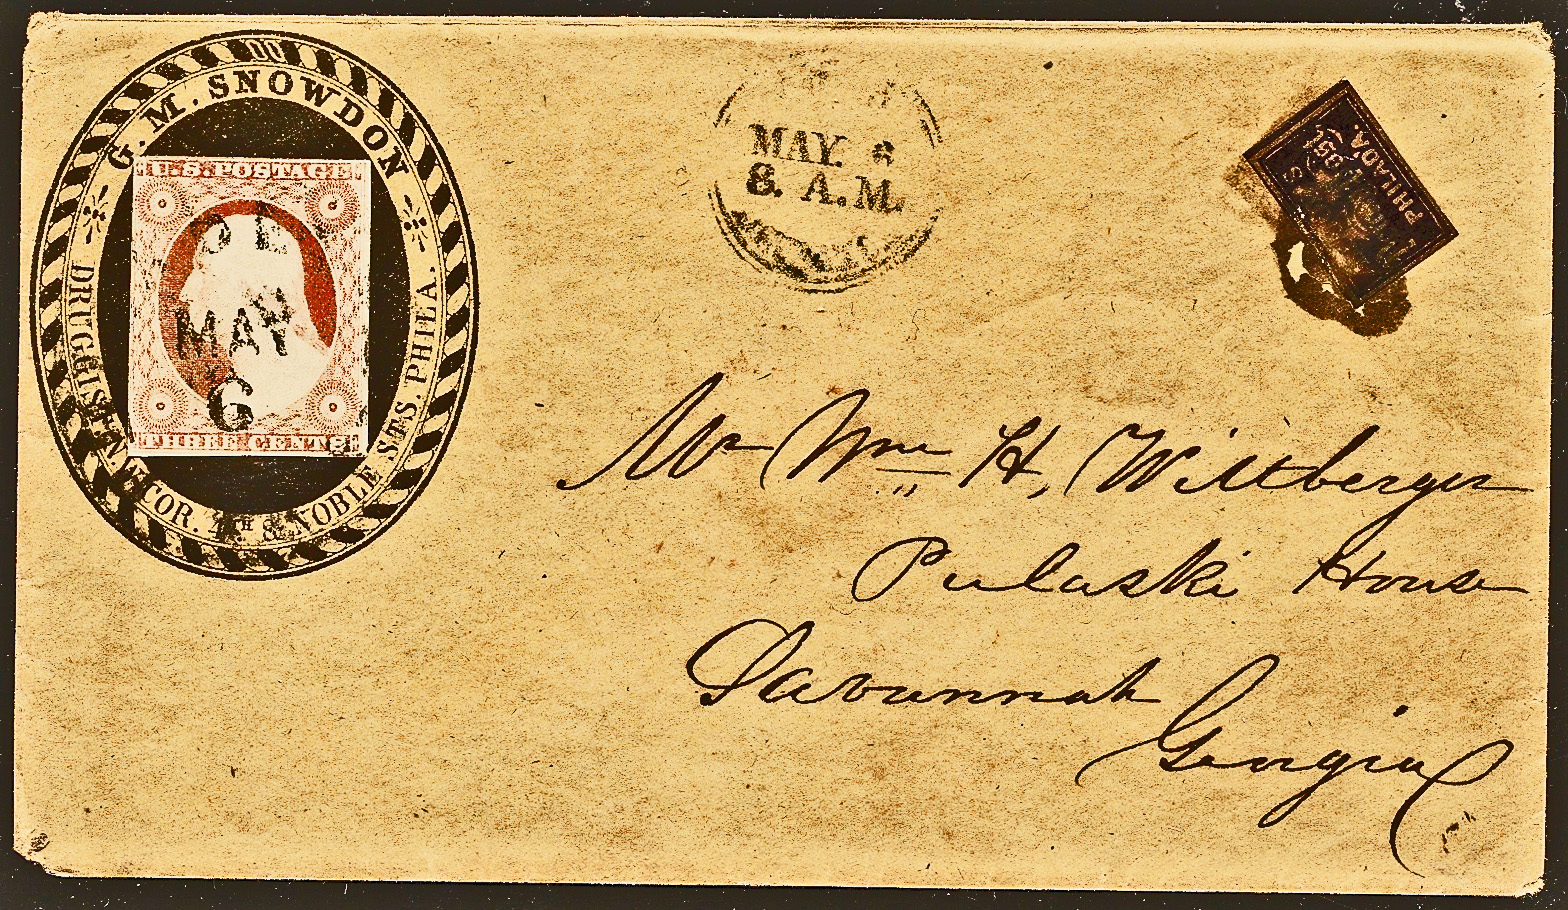 G. M. SNOWDON
DRUGGIST COR. 7TH & NOBLE STS. PHILA.
U.S. POSTAGE
MAY
6
THREE CENTS
MAY. 6
8. A.M.
PHILADA.
Mr Wm H, Wiltberger
Pulaski House
Savannah
Georgia